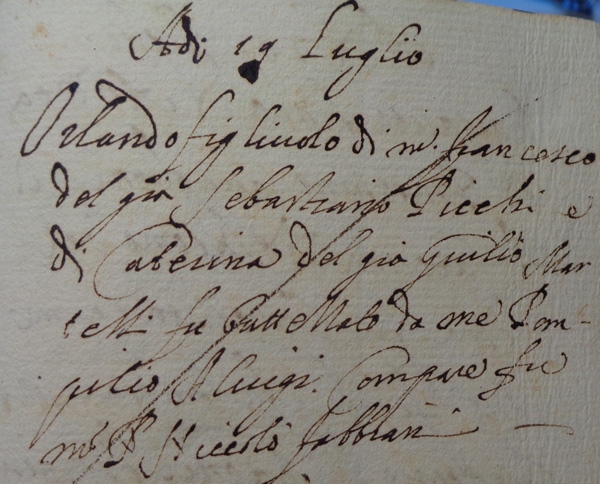 Adi 19 Luglio
Orlando figliuolo di m.r francesco
del gia Sebastiano Picchi e
di Caterina del gia Guilio Mar
telli fu battezzato da me Pom-
pilio Aluigi. Compare fu
m.r Niccolò fabbiani